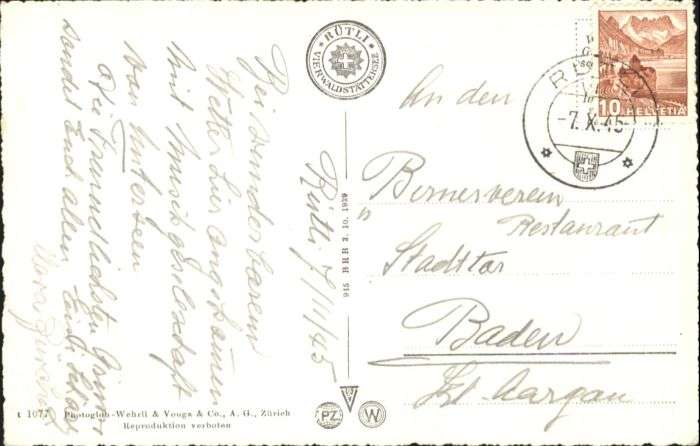 RÜTLI
VIERWALDSTÄTTERSEE
Bei wunderbarem
Wetter hier angekommen
mit Musikgesellschaft
von Unterseen
Die freundlichsten Grüsse
sendet Euch allen
Rütli 7/10/45
945 BRB 3. 10. 1939
t 1077 Photoglob-Wehrli & Vouga & Co., A. G., Zürich
Reproduktion verboten
PZ
W
10 HELVETIA
-7.X.45
An den
Bernerverein
Restaurant
Stadttor
Baden
Kt. Aargau